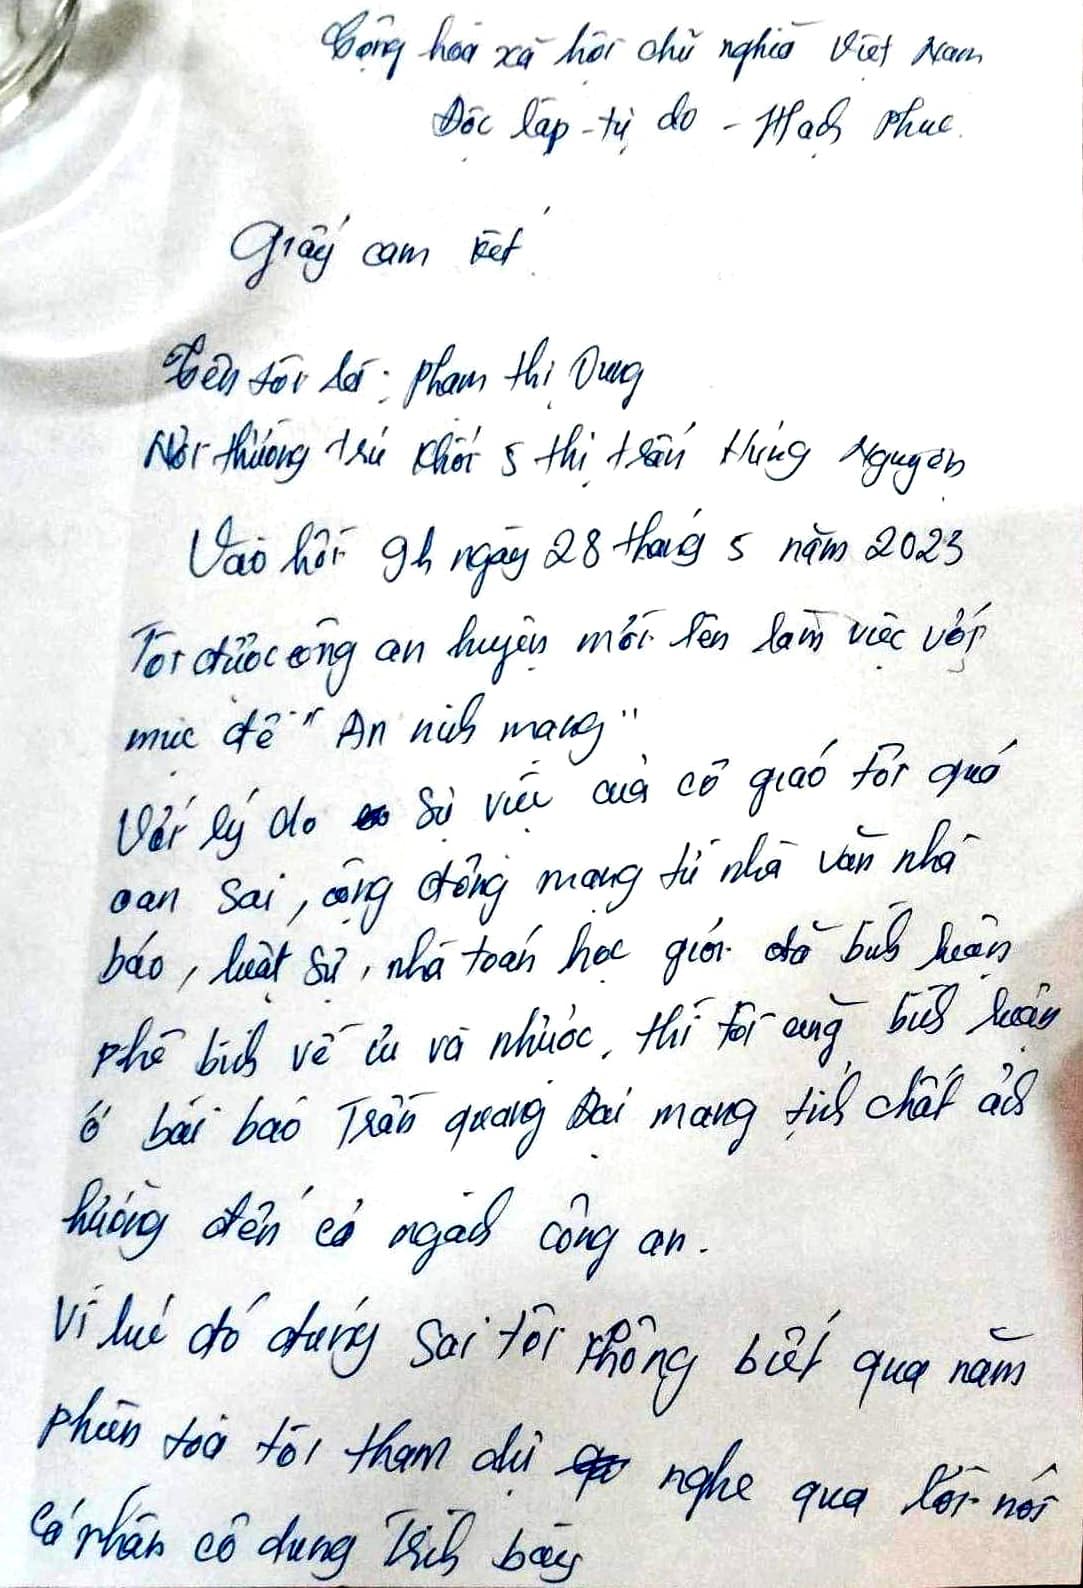 Cộng hòa xã hội chủ nghĩa Việt Nam
Độc lập - tự do - Hạnh phúc.
Giấy cam kết.
Tên tôi là: Phạm thị Dung
Nơi thường trú khối 5 thị trấn Hưng Nguyên
Vào hồi 9h ngày 28 tháng 5 năm 2023
Tôi được công an huyện mời lên làm việc với
mục đề "An ninh mạng"
Với lý do sự việc của cô giáo tôi quá
oan sai, cộng đồng mạng từ nhà văn nhà
báo, luật sư, nhà toán học giới đã bình luận
phê bình về ưu và nhược, thì tôi cũng bình luận
ở bài báo Trần quang Đại mang tính chất ảnh
hưởng đến cả ngành công an.
Vì lúc đó đúng sai tôi không biết qua năm
phiên toà tôi tham dự nghe qua lời nói
cá nhân cô dung trình bày